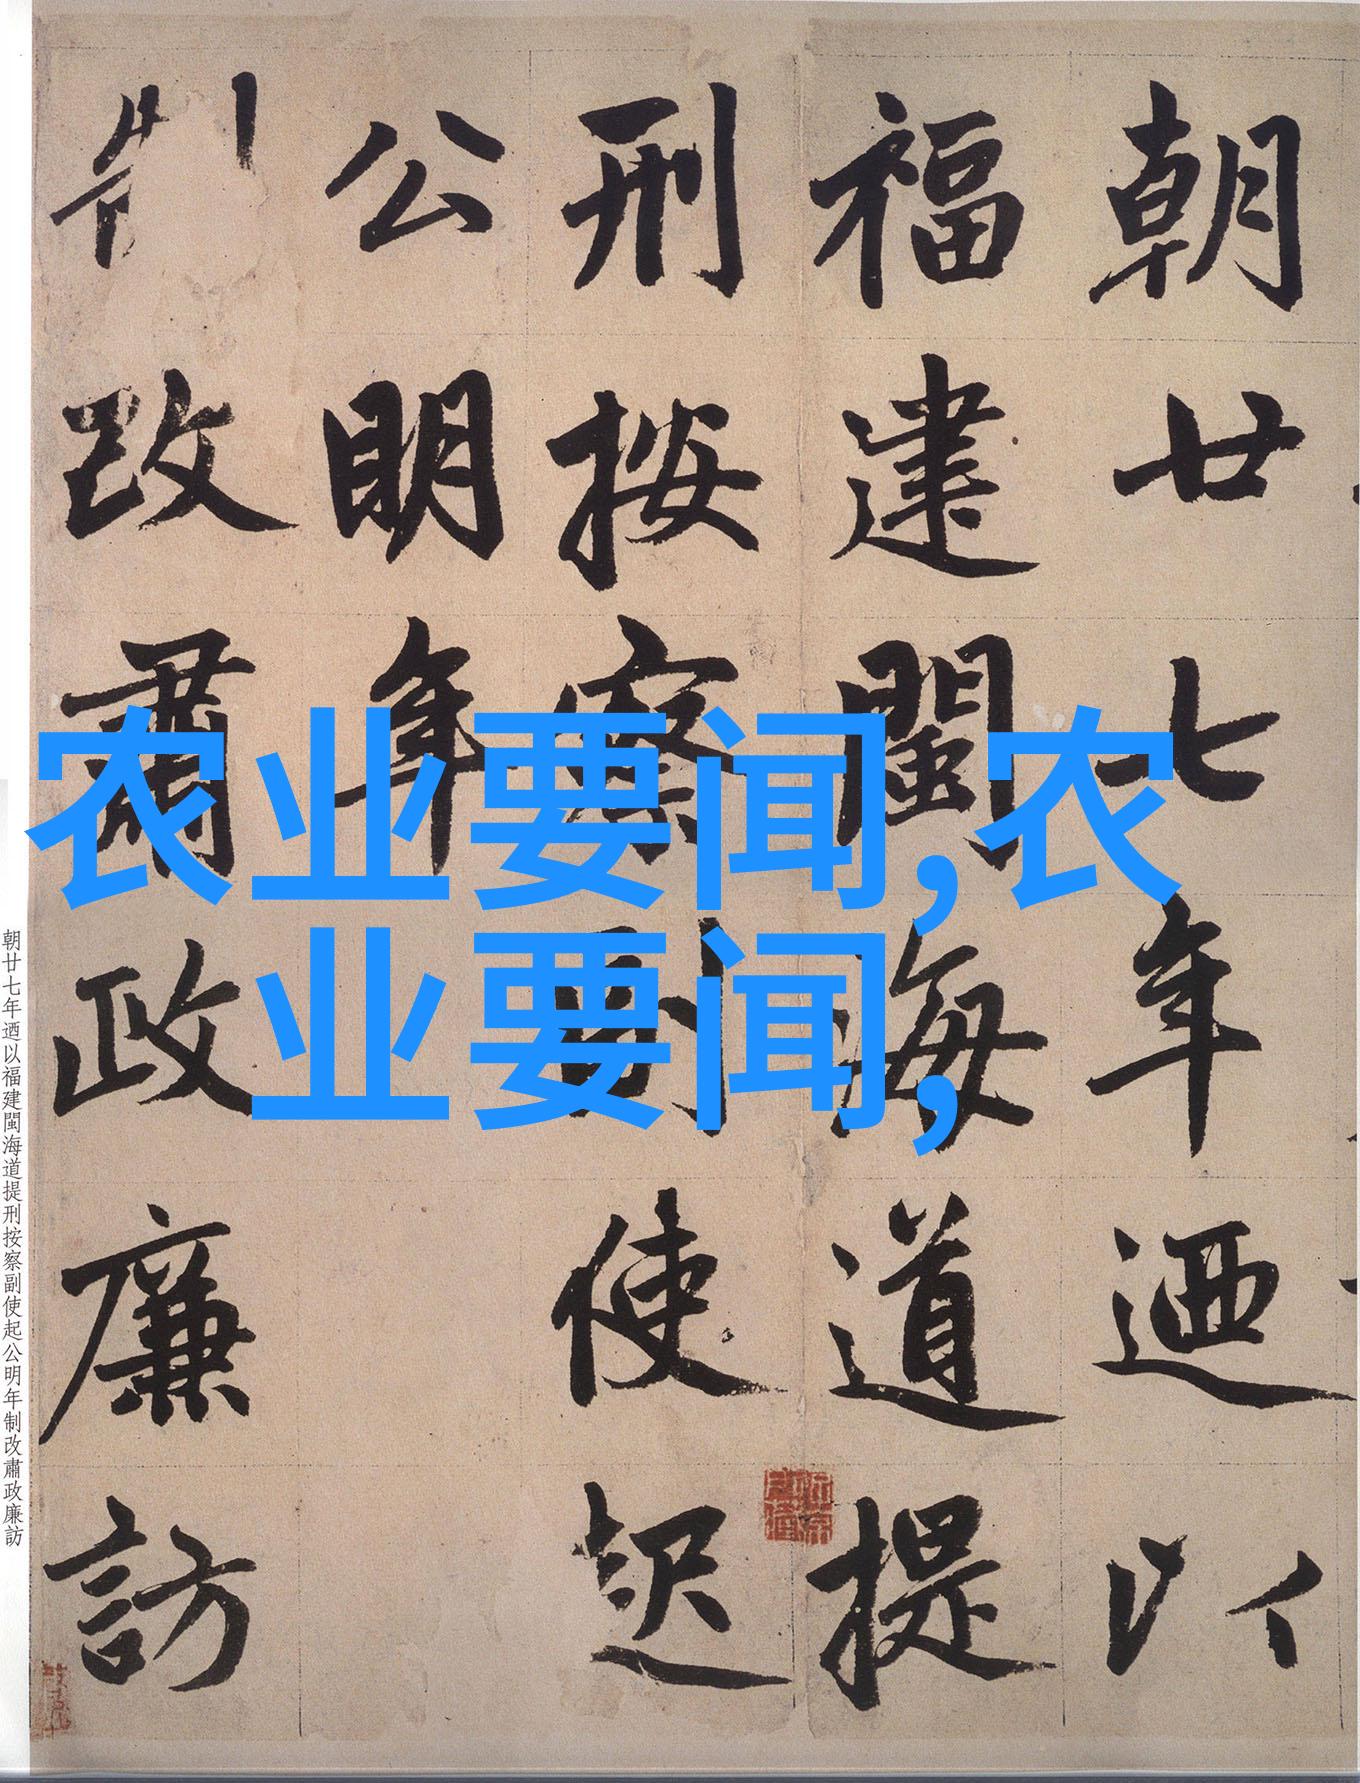 朝廿七年迺以
福建閩海道提
刑按察副使起
公明年
制改肅政廉訪
农业要闻,农
业要闻,
朝廿七年迺以福建閩海道提刑按察副使起公明年制改肅政廉訪